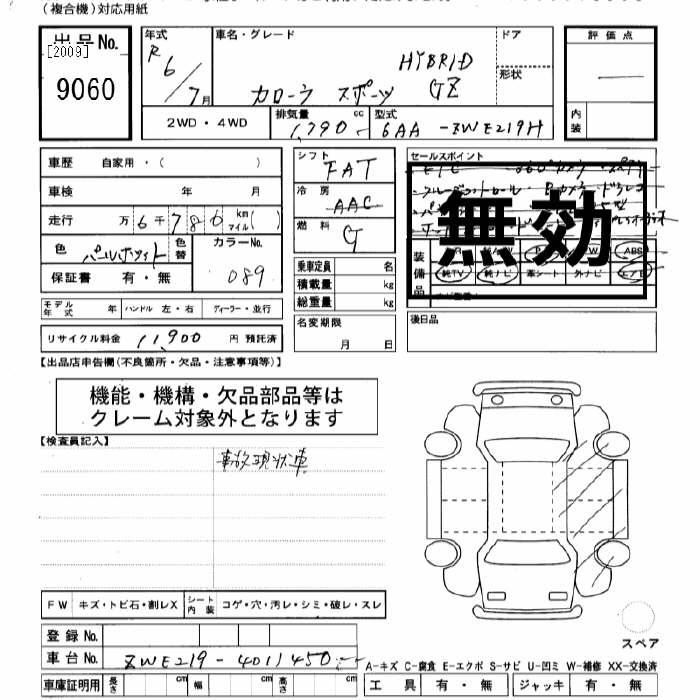 (複合機)対応用紙
出品No.
[2009]
9060
年式
R6/7月
車名・グレード
HYBRID
カローラ スポーツ GZ
ドア
形状
評価点
内装
2WD・4WD
排気量 1,790 cc
型式 6AA-ZWE219H
車歴 自家用・( )
車検 年 月
走行 万 6千786 km マイル( )
色 パールホワイト
色替
カラーNo. 089
保証書 有・無
モデル年式 年 ハンドル 左・右 ディーラー・並行
リサイクル料金 11,900 円 預託済
シフト FAT
冷房 AAC
燃料 G
乗車定員 名
積載量 kg
総重量 kg
名変期限
月 日
セールスポイント
無効
装備品
ABS
純TV 純ナビ 革シート 外ナビ エアB
後日品
【出品店申告欄(不良箇所・欠品・注意事項等)】
機能・機構・欠品部品等は
クレーム対象外となります
【検査員記入】
事故現状車
FW キズ・トビ石・割レX シート内装 コゲ・穴・汚レ・シミ・破レ・スレ
登録No.
車台No. ZWE219-4011450
車庫証明用 長さ cm 幅 cm 高さ cm
スペア
A-キズ C-腐食 E-エクボ S-サビ U-凹ミ W-補修 XX-交換済
工具 有・無 ジャッキ 有・無